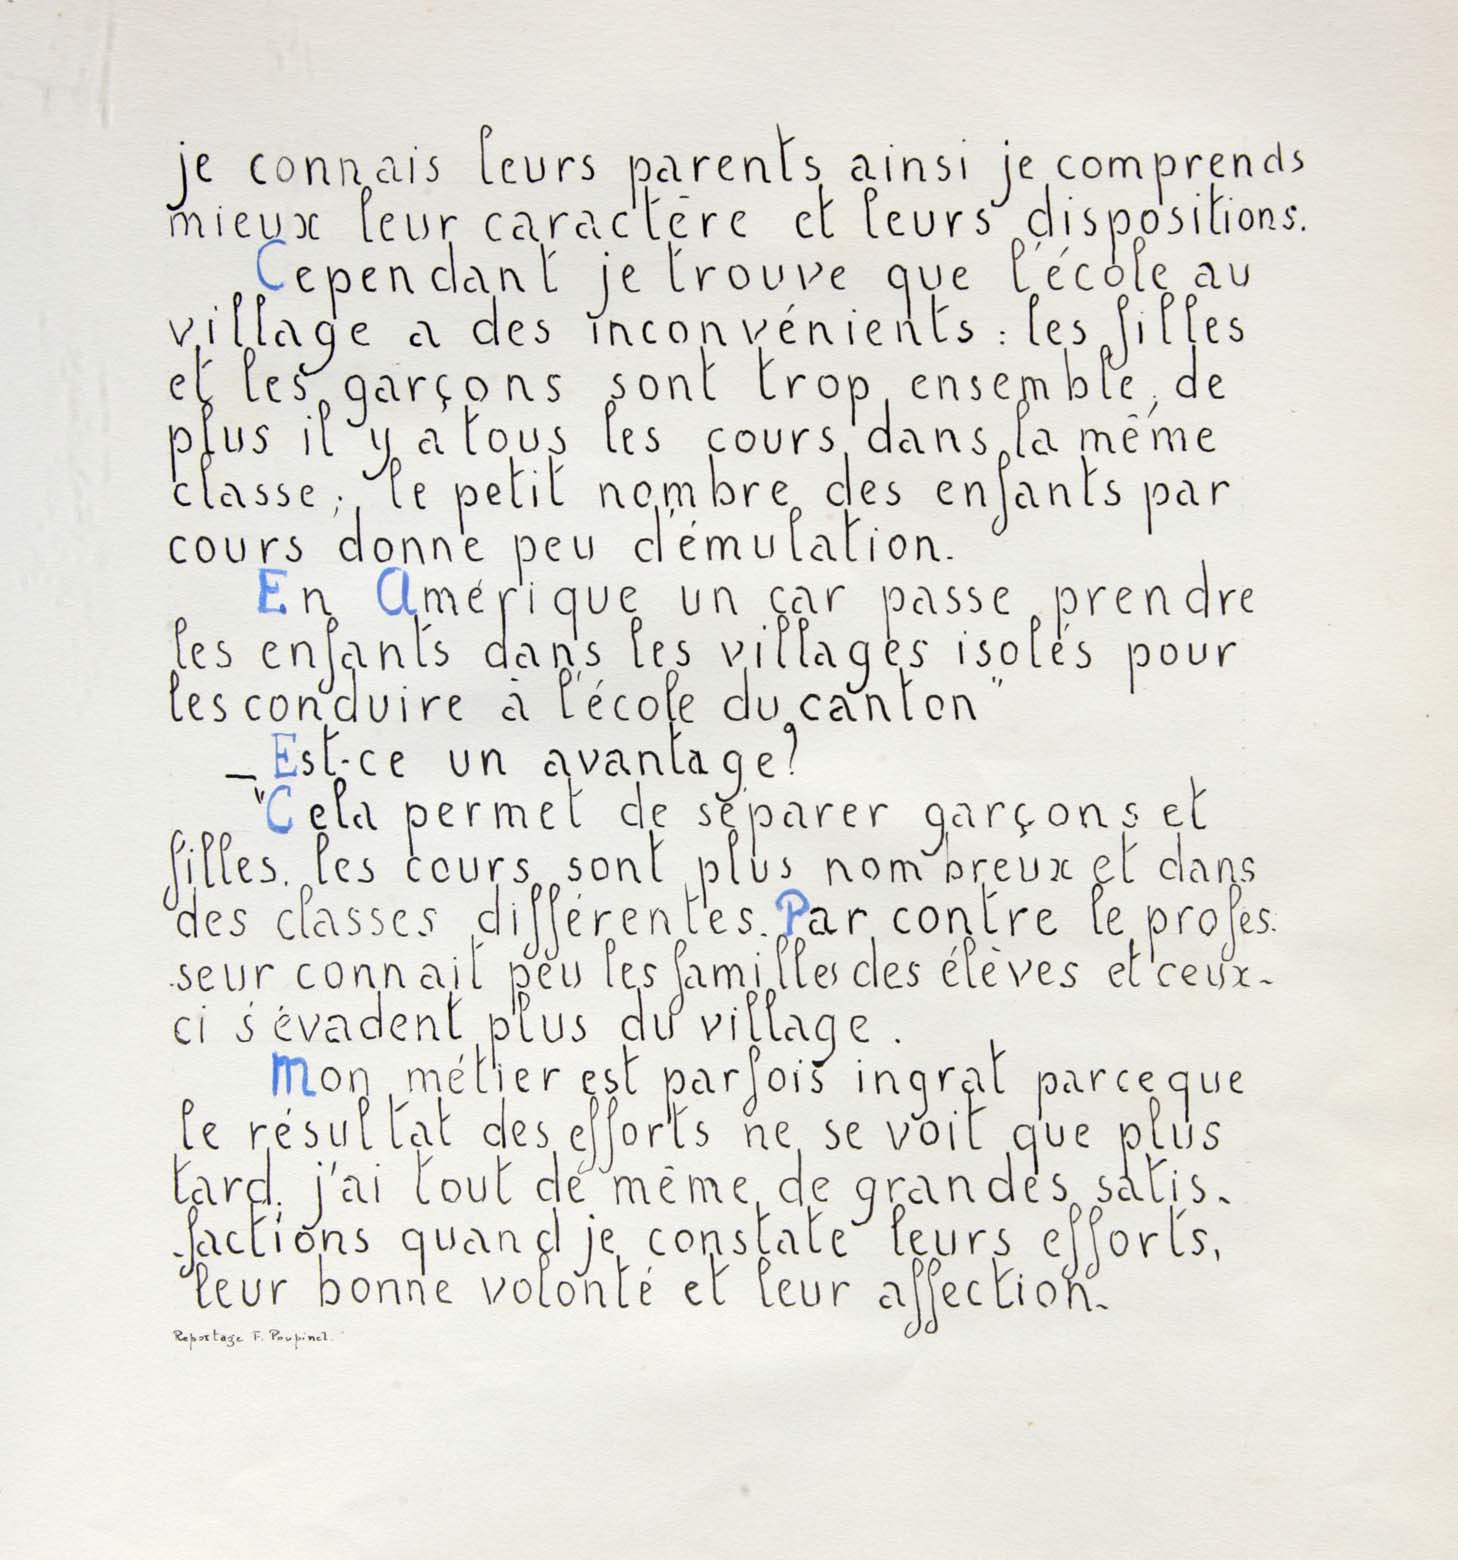 je connais leurs parents ainsi je comprends
mieux leur caractère et leurs dispositions.
Cependant je trouve que l'école au
village a des inconvénients : les filles
et les garçons sont trop ensemble, de
plus il y a tous les cours dans la même
classe ; le petit nombre des enfants par
cours donne peu d'émulation.
En Amérique un car passe prendre
les enfants dans les villages isolés pour
les conduire à l'école du canton"
_ Est-ce un avantage?
"Cela permet de séparer garçons et
filles. les cours sont plus nombreux et dans
des classes différentes. Par contre le profes.
-seur connait peu les familles des élèves et ceux-
ci s'évadent plus du village.
Mon métier est parfois ingrat parceque
le résultat des efforts ne se voit que plus
tard. j'ai tout de même de grandes satis-
-factions quand je constate leurs efforts,
leur bonne volonté et leur affection.
Reportage F. Poupinel.